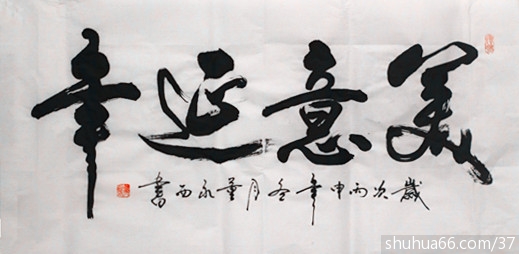 美意延年
歲次丙申年冬月董永西書
shuhua66.com/37